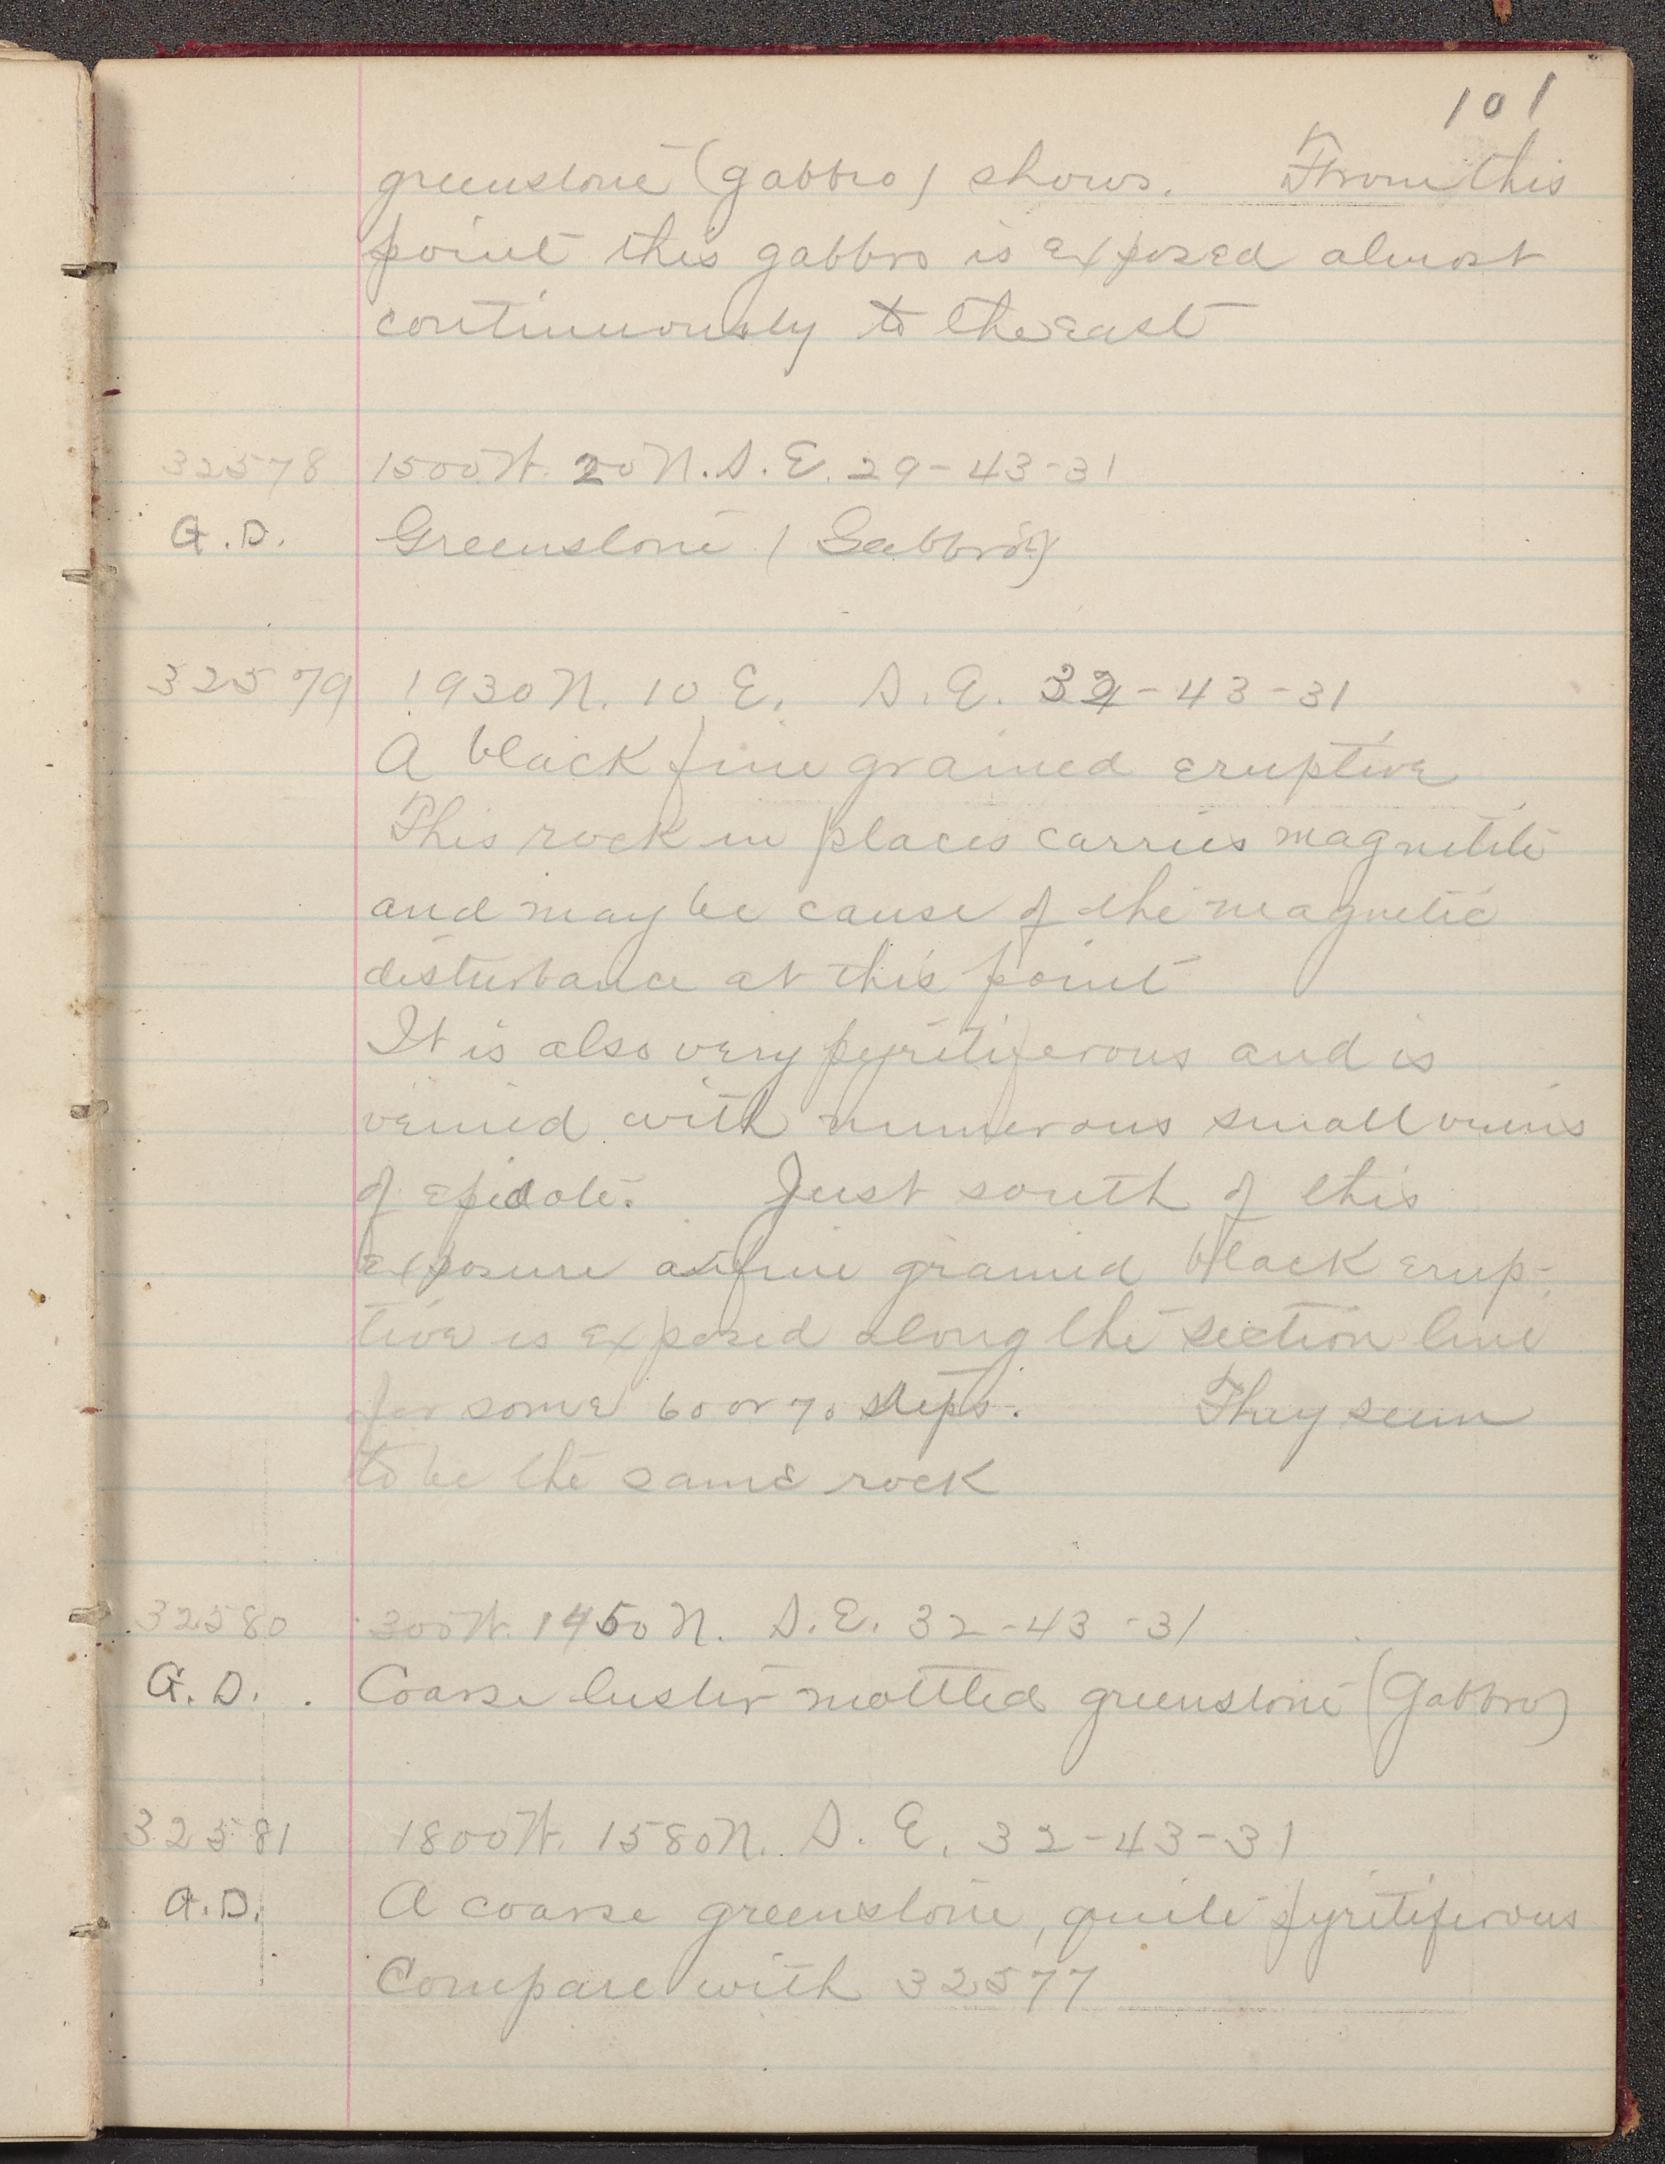 101
greenstone (gabbro) shows. From this
point this gabbro is exposed almost
continuously to the east
32578 1500 W. 20 N. S. E. 29-43-31
G.D. Greenstone (Gabbro)
32579 1930 N. 10 E. S. E. 32-43-31
A black fine grained eruptive
This rock in places carries magnetite
and may be cause of the magnetic
disturbance at this point
It is also very pyritiferous and is
veined with numerous small veins
of epidote. Just south of this
exposure a fine grained black erup-
tive is exposed along the section line
for some 60 or 70 steps. They seem
to be the same rock
32580 300 W. 1450 N. S. E. 32-43-31
G.D. Coarse luster mottled greenstone (Gabbro)
32581 1800 W. 1580 N. S. E. 32-43-31
G.D. A coarse greenstone, quite pyritiferous
Compare with 32577